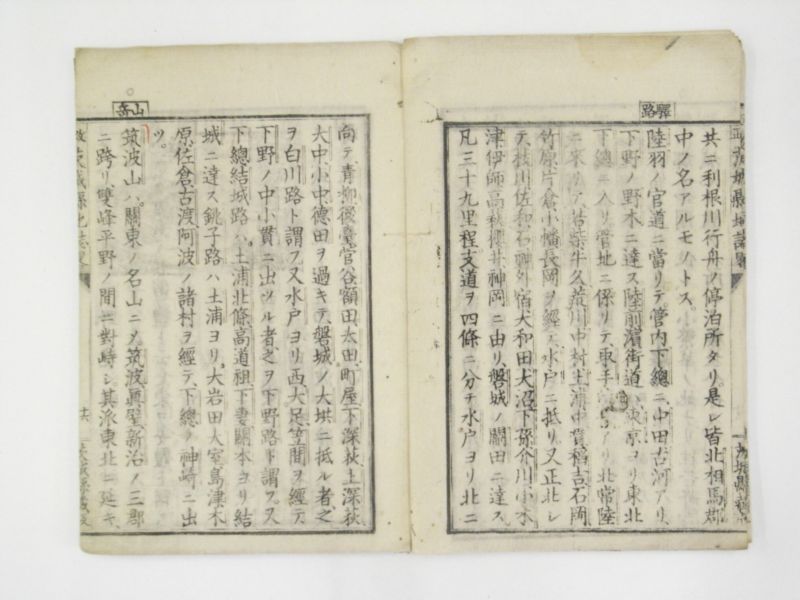 驛路
共ニ利根川行舟ノ停泊所タリ。是レ皆北相馬郡
中ノ名アルモノトス。
陸羽ノ官道ニ當リテ管内下總ニ、中田古河アリ、
下野ノ野木ニ達ス陸前濱街道ハ東京ヨリ東北
下總ニ入リ管地ニ係リテ取手 アリ北常陸
ニ來リテ若柴牛久荒川中村土浦中貫稻吉石岡
竹原片倉小幡長岡ヲ經テ水戸ニ抵リ又正北シ
テ枝川佐和石神外宿大和田大沼下孫介川小木
津伊師高萩櫻井神岡ニ由リ磐城ノ關田ニ達ス、
凡三十九里程支道ヲ四條ニ分チ水戸ヨリ北ニ
山岳
向テ青柳後臺官谷額田太田町屋下深荻上深荻
大中小中德田ヲ過キテ、磐城ノ大垬ニ抵ル者之
ヲ白川路ト謂フ又水戸ヨリ西大足笠間ヲ經テ
下野ノ中小貫ニ出ヅル者之ヲ下野路ト謂フ又
下總結城路ハ土浦北條高道祖下妻關本ヨリ結
城ニ達ス銚子路ハ土浦ヨリ大岩田大室島津木
原佐倉古渡阿波ノ諸村ヲ經テ、下總ノ神崎ニ出
ツ。
筑波山ハ、關東ノ名山ニメ筑波眞壁新治ノ三郡
ニ跨リ、雙峰平野ノ間ニ對峙シ其派東北ニ延キ、